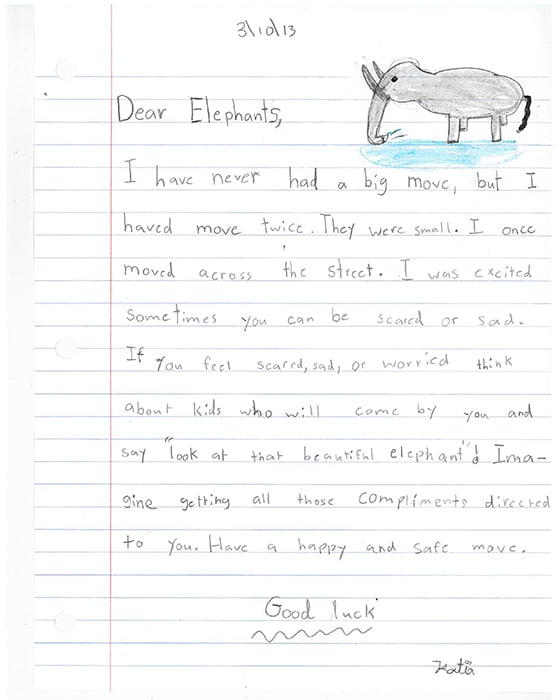 3\10\13
Dear Elephants,
I have never had a big move, but I
haved move twice. They were small. I once
moved across the street. I was excited
sometimes you can be scared or sad.
If you feel scared, sad, or worried think
about kids who will come by you and
say "look at that beautiful elephant"! Ima-
gine getting all those compliments directed
to you. Have a happy and safe move.
Good luck
Katia